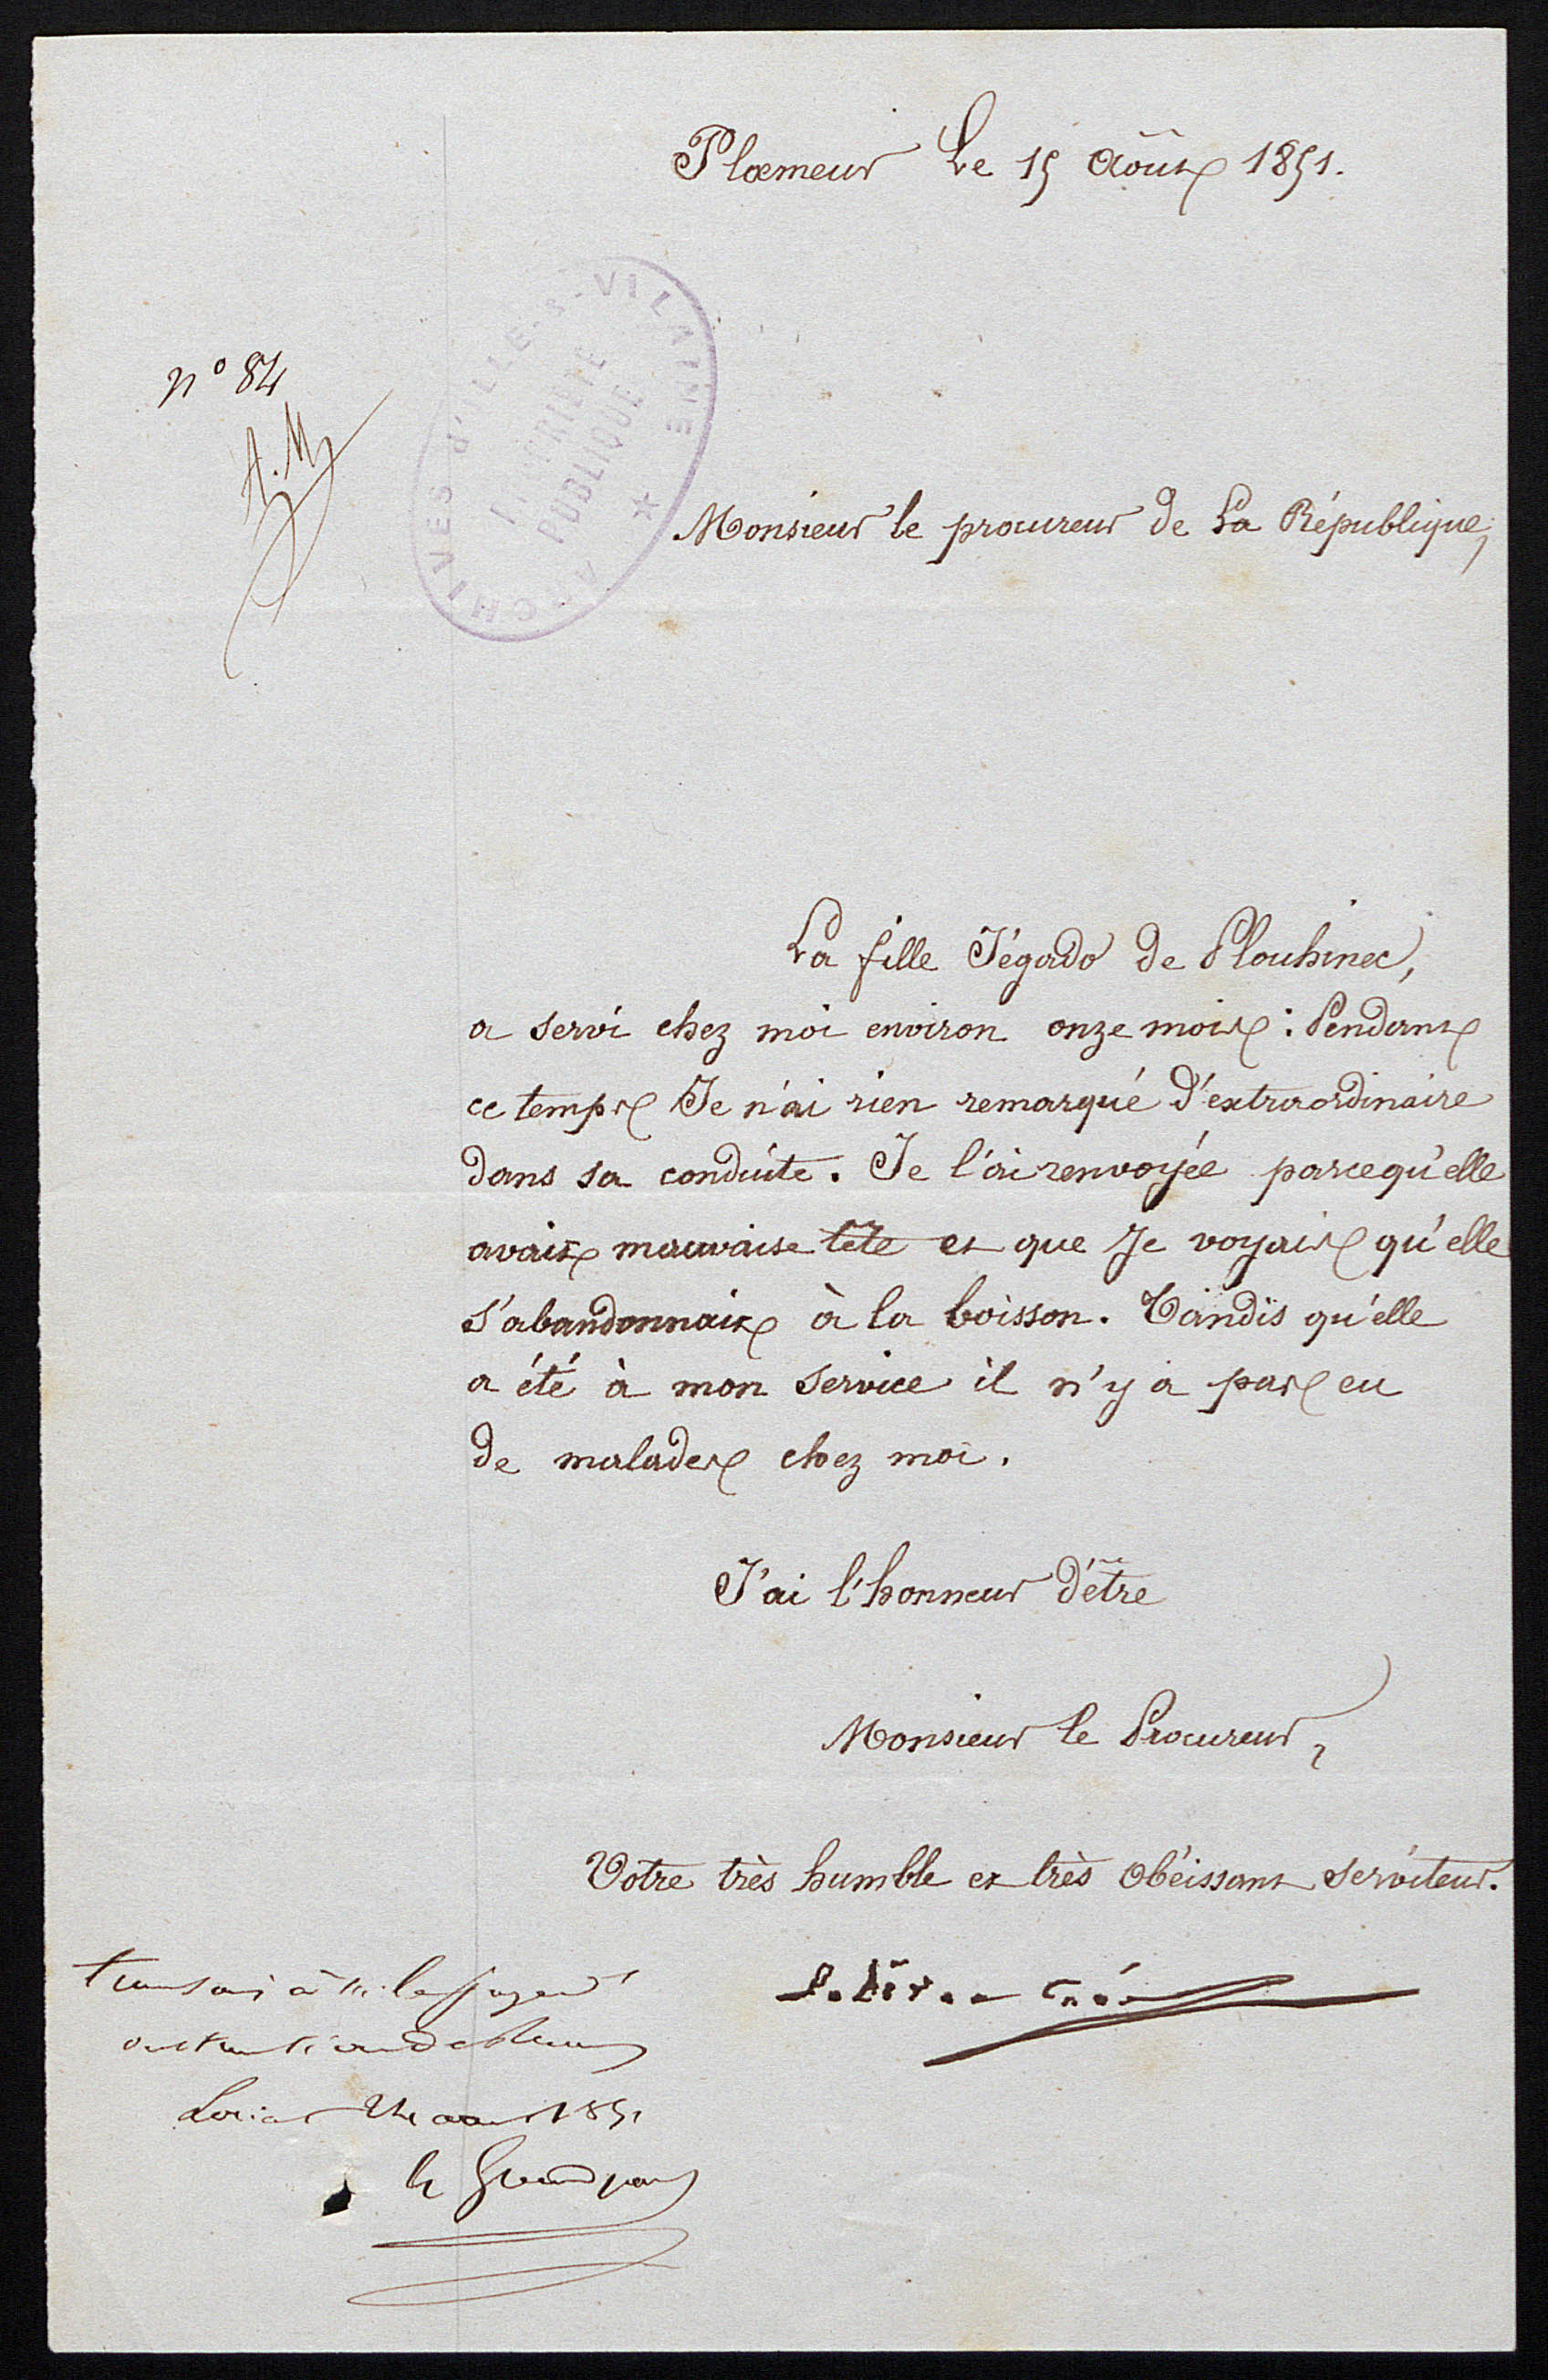 Ploemeur Le 15 Août 1851.
n° 84
A. M
ARCHIVES d'ILLE-&-VILAINE
PROPRIÉTÉ
PUBLIQUE
Monsieur le procureur de La République,
La fille Jégado de Plouhinec,
a servi chez moi environ onze mois : Pendant
ce temps Je n'ai rien remarqué d'extraordinaire
dans sa conduite. Je l'ai renvoyée parcequ'elle
avait mauvaise tête et que Je voyais qu'elle
s'abandonnait à la boisson. Tandis qu'elle
a été à mon service il n'y a pas eu
de malades chez moi.
J'ai l'honneur d'être
Monsieur le Procureur,
Votre très humble et très obéissant serviteur.
transmis à M. le juge d'